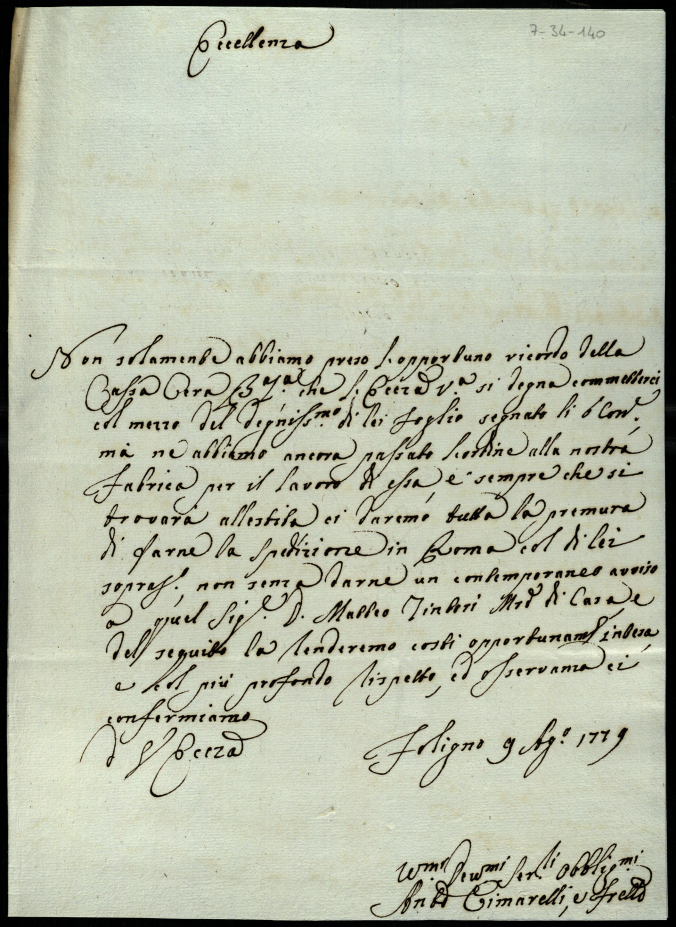 7-34-140
Eccellenza
Non solamente abbiamo preso l'opportuno ricordo della
Cassa Cera che l'Eccza V.a si degna commetterci
col mezzo del degniss.mo di lei foglio segnato li 6 Corr.e
mà ne abbiamo ancora passato l'ordine alla nostra
Fabrica per il lavoro di essa, e sempre che si
trovarà allestita ci daremo tutta la premura
di farne la spedizione in Roma col di lei
sopras.o, non senza darne un contemporaneo avviso
a quel Sig.e D. Matteo Tintori Mro di Casa, e
del seguito la renderemo costì opportunam.e intesa,
e col più profondo rispetto, ed osservanza ci
confermiamo
d V Eccza
Foligno 9 Ag.o 1779
Um̃i Deṽmi Ser.ri Obblig.mi
Ant.o Cimarelli, e Frello